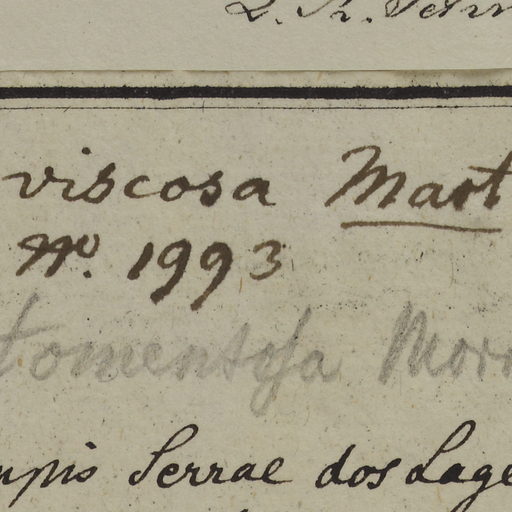 viscosa Mart
No. 1993
tomentosa
Serrae dos Lage